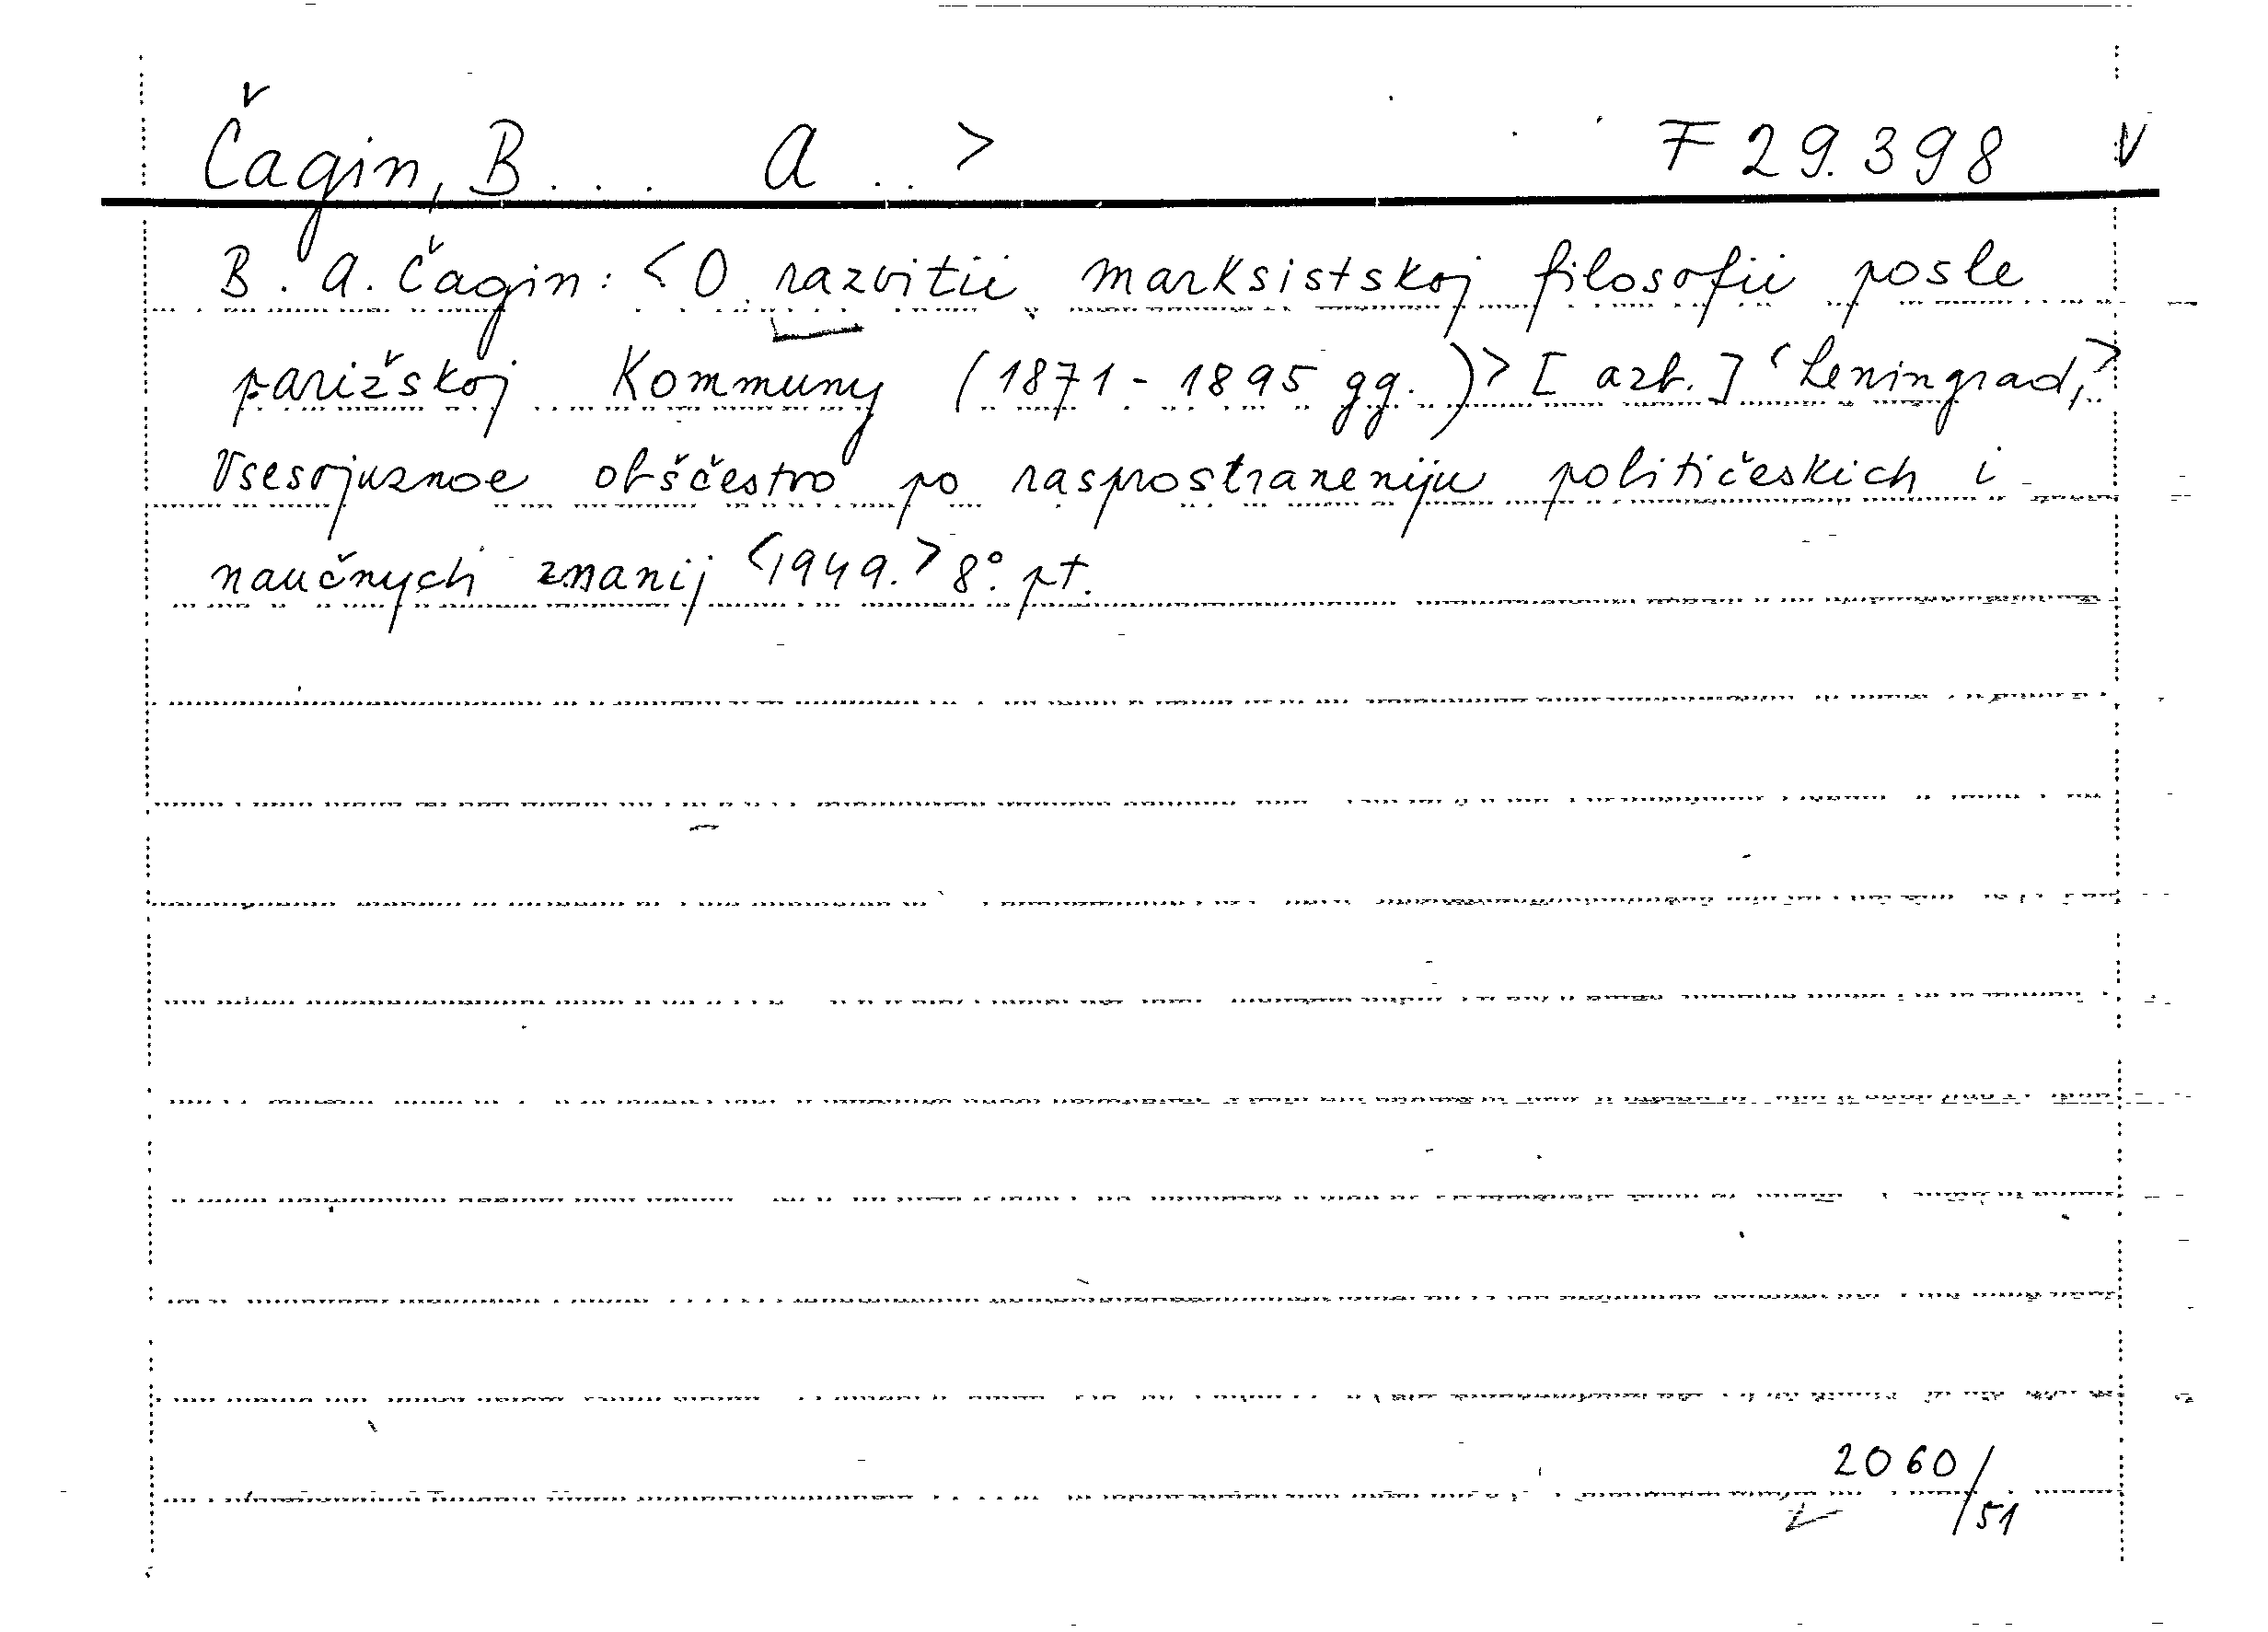 Čagin, B... A..>  F 29.398 V
B. A. Čagin: <O razvitii marksistskoj filosofii posle
parižskoj Kommuny (1871-1895 gg.)> [azb.] <Leningrad,>
Vsesojuznoe obščestvo po rasprostraneniju političeskich i
naučnych znanij <1949.> 8°. pt.
2060/51